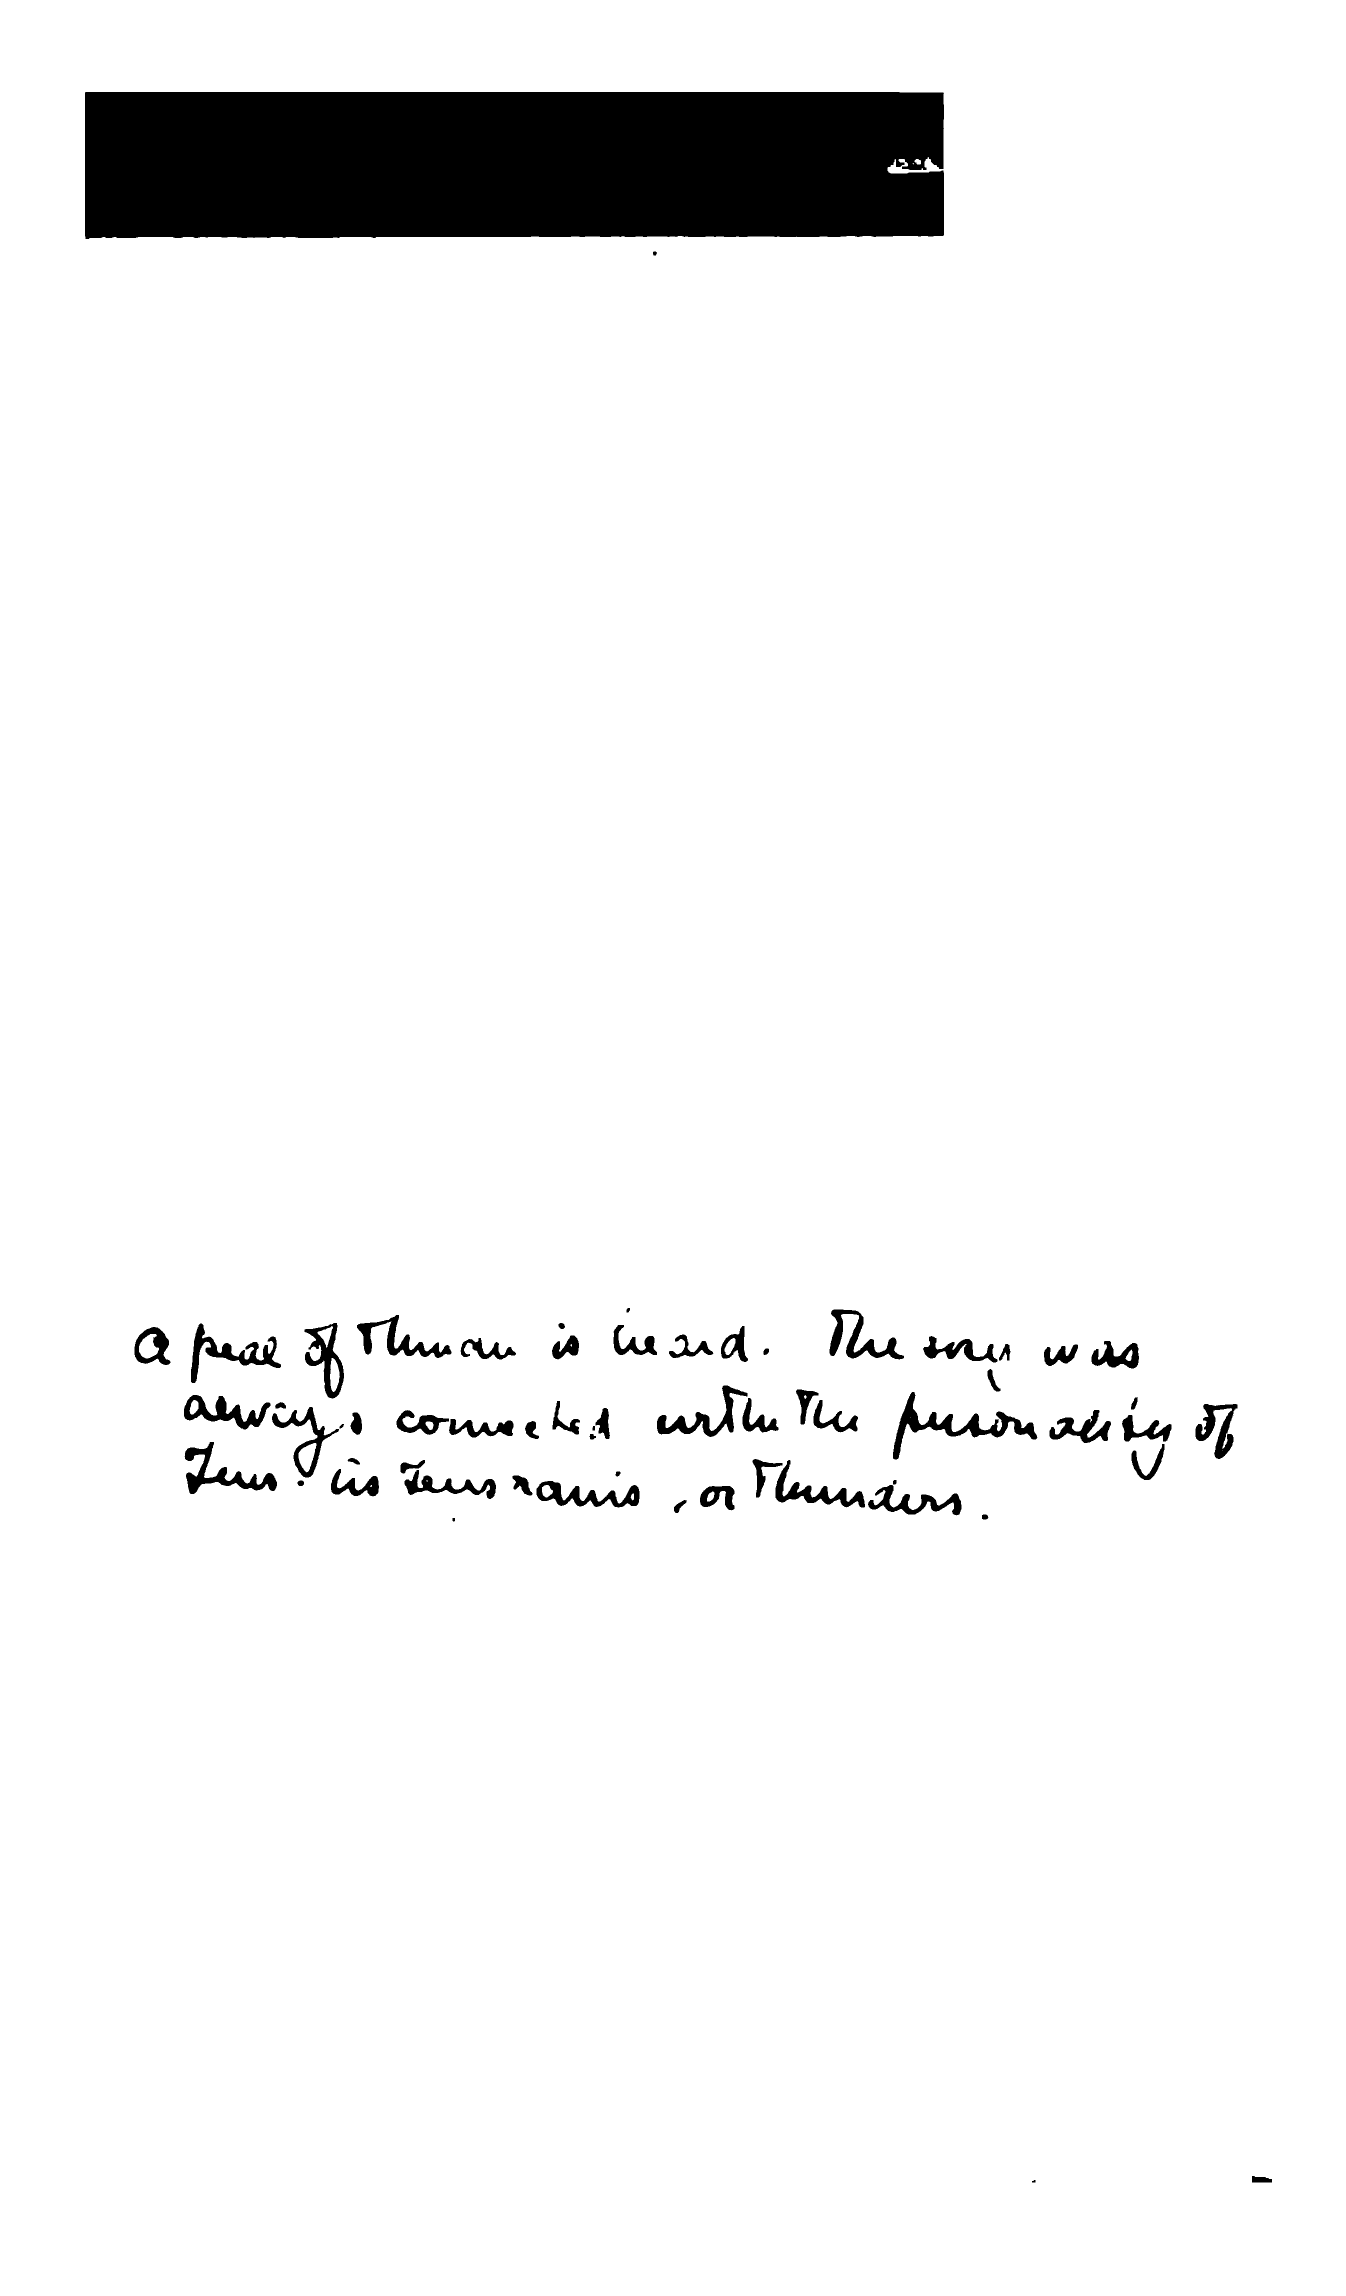 a peal of thunder is heard. The sky was
always connected with the personality of
Zeus. as Zeus rains, or thunders.